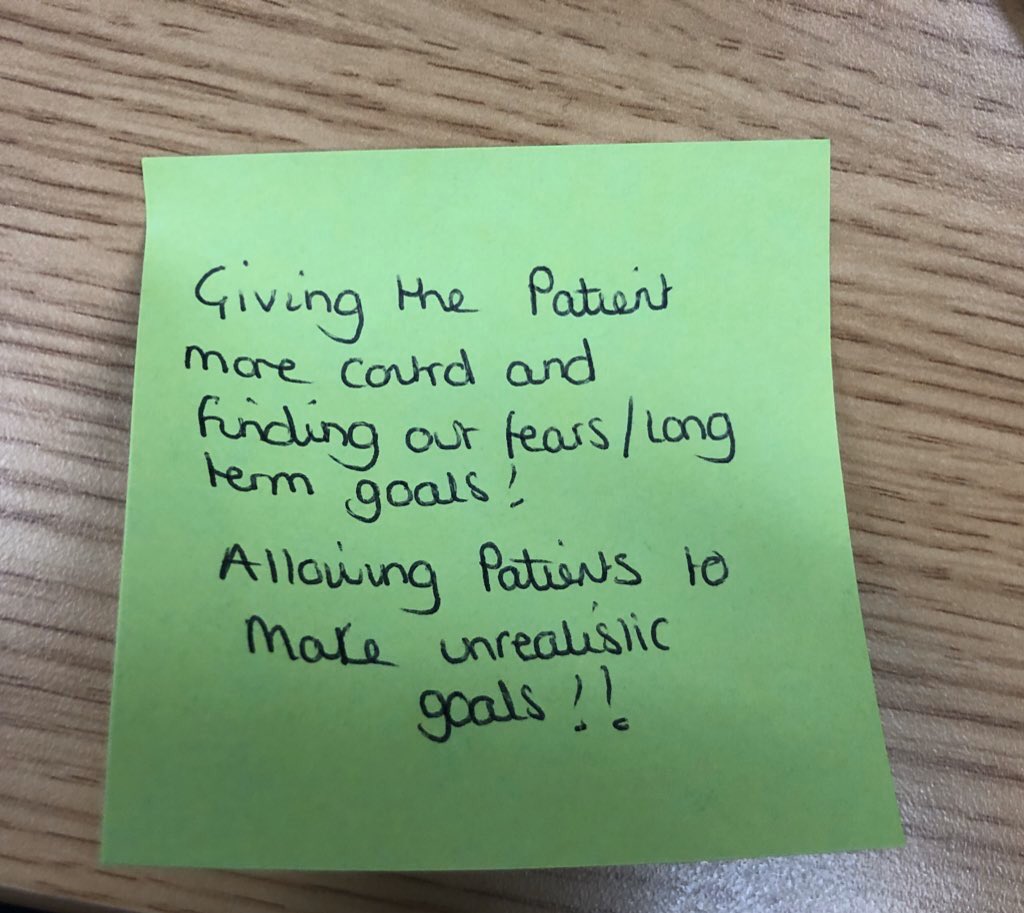 Giving the Patient
more control and
finding out fears/long
term goals!
Allowing Patients to
make unrealistic
goals!!